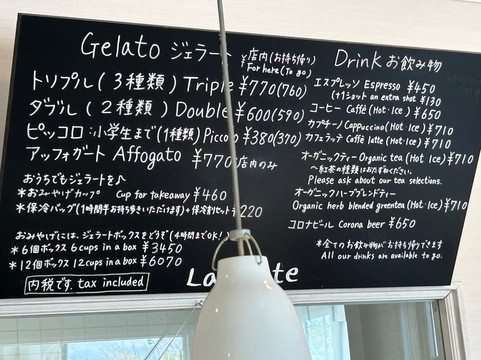 Gelato ジェラート ¥店内(お持ち帰り)
For here(To go)
トリプル(3種類) Triple ¥770(760)
ダブル(2種類) Double ¥600(590)
ピッコロ:小学生まで(1種類) Piccolo ¥380(370)
アッフォガート Affogato ¥770 店内のみ
おうちでもジェラートを♪
*おみやげカップ Cup for takeaway ¥460
*保冷バッグ(1時間半お持ち歩きいただけます)+保冷剤セット 220
おみやげにはジェラートボックスをどうぞ(4時間までOK!)
*6個ボックス 6 cups in a box ¥3450
*12個ボックス 12 cups in a box ¥6070
内税です. tax included
Drink お飲み物
エスプレッソ Espresso ¥450
(+1ショット an extra shot ¥130
コーヒー Caffé (Hot・Ice) ¥650
カプチーノ Cappuccino (Hot・Ice) ¥710
カフェラッテ Caffé latte (Hot・Ice) ¥710
オーガニックティー Organic tea (Hot・Ice) ¥710
〜紅茶の種類はおたずねください。
Please ask about our tea selections.
オーガニックハーブブレンドティー
Organic herb blended green tea (Hot・Ice) ¥710
コロナビール Corona beer ¥650
*全てのお飲み物がお持ち帰りできます
All our drinks are available to go.